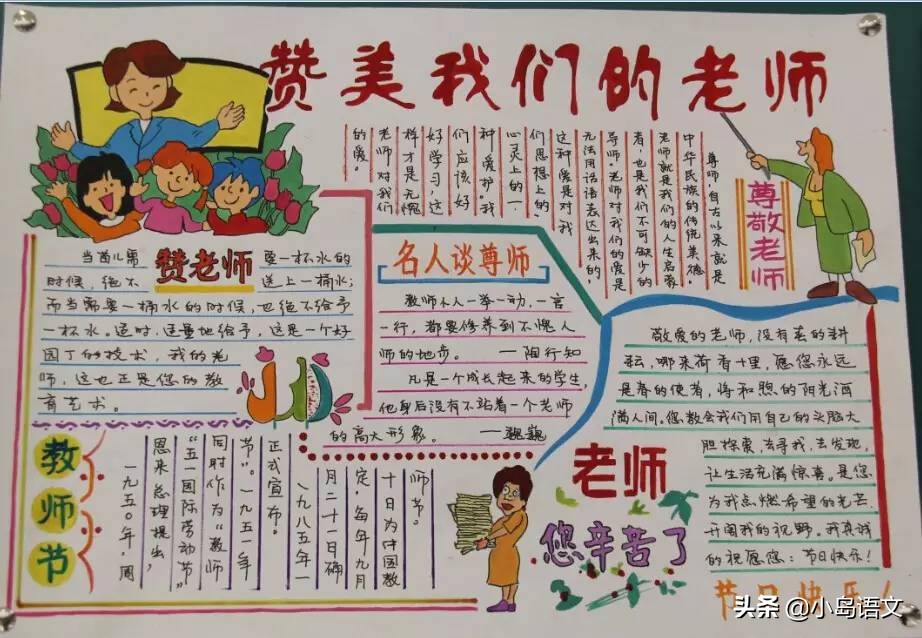 赞美我们的老师
尊敬老师
尊师，自古以来就是
中华民族的传统美德。
老师就是我们的人生启蒙
者，也是我们不可缺少的
导师。老师对我们的爱是
无法用话语表达出来的，
这种爱是对我
们思想上的、
心灵上的一
种爱护。我
们应该好
好学习，这
样才是无愧
老师对我们
的爱。
赞老师
当苗儿需要一杯水的
时候，绝不送上一桶水；
而当需要一桶水的时候，也绝不给予
一杯水。适时，适量地给予，这是一个好
园丁的技术，我的老
师，这也正是您的教
育艺术。
名人谈尊师
教师个人一举一动，一言
一行，都要修养到不愧人
师的地步。——陶行知
凡是一个成长起来的学生，
他身后没有不站着一个老师
的高大形象。——魏巍
敬爱的老师，没有春的耕
耘，哪来荷香十里，愿您永远
是春的使者，将和煦的阳光洒
满人间。您教会我们用自己的头脑大
胆探索，去寻找，去发现，
让生活充满惊喜。是您
为我点燃希望的光芒，
开阔我的视野。我真诚
的祝愿您：节日快乐！
教师节
一九五〇年，周
恩来总理提出，
“五一国际劳动节”
同时作为“教师
节”。一九五一年
正式宣布。
一九八五年一
月二十一日确
定，每年九月
十日为中国教
师节。
老师
您辛苦了
节日快乐！
头条 @小岛语文